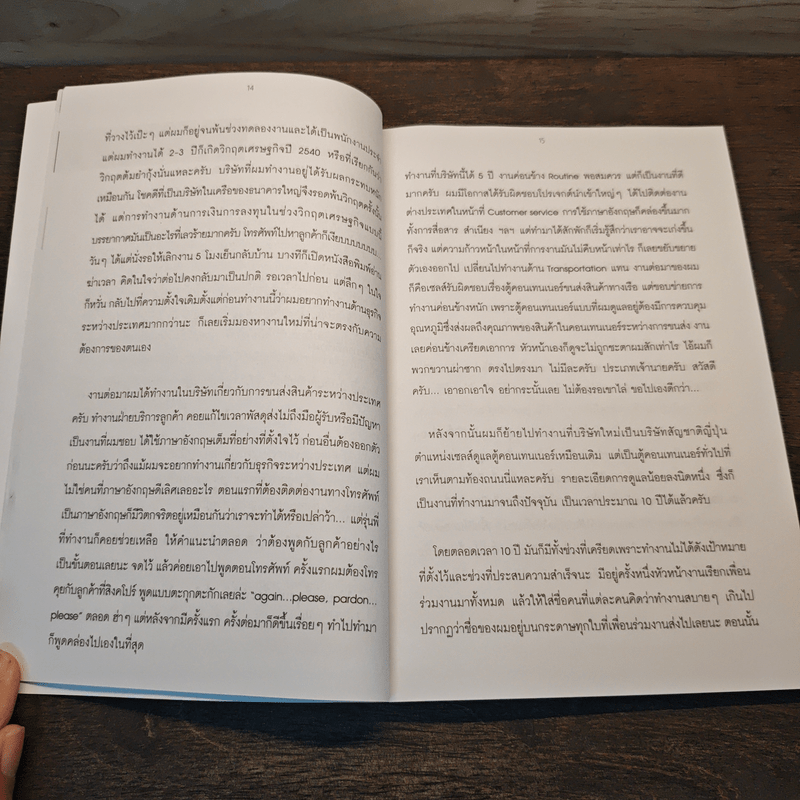 14
ที่วางไว้เป๊ะๆ แต่ผมก็อยู่จนพ้นช่วงทดลองงานและได้เป็นพนักงานประจำ
แต่ผมทำงานได้ 2-3 ปีก็เกิดวิกฤตเศรษฐกิจปี 2540 หรือที่เรียกกันว่า
วิกฤตต้มยำกุ้งนั่นแหละครับ บริษัทที่ผมทำงานอยู่ได้รับผลกระทบหนัก
เหมือนกัน โชคดีที่เป็นบริษัทในเครือของธนาคารใหญ่จึงรอดพ้นวิกฤตครั้งนั้น
ได้ แต่การทำงานด้านการเงินการลงทุนในช่วงวิกฤตเศรษฐกิจแบบนี้
บรรยากาศมันเป็นอะไรที่เลวร้ายมากครับ โทรศัพท์ไปหาลูกค้าก็เงียบบบบบบบ...
วันๆ ได้แต่นั่งรอให้เลิกงาน 5 โมงเย็นกลับบ้าน บางทีก็เปิดหนังสือพิมพ์อ่าน
ฆ่าเวลา คิดในใจว่าต่อไปคงกลับมาเป็นปกติ รอเวลาไปก่อน แต่ลึกๆ ในใจ
ก็หวั่น กลับไปที่ความตั้งใจเดิมตั้งแต่ก่อนทำงานนี้ว่าผมอยากทำงานด้านธุรกิจ
ระหว่างประเทศมากกว่านะ ก็เลยเริ่มมองหางานใหม่ที่น่าจะตรงกับความ
ต้องการของตนเอง
งานต่อมาผมได้ทำงานในบริษัทเกี่ยวกับการขนส่งสินค้าระหว่างประเทศ
ครับ ทำงานฝ่ายบริการลูกค้า คอยแก้ไขเวลาพัสดุส่งไม่ถึงมือผู้รับหรือมีปัญหา
เป็นงานที่ผมชอบ ได้ใช้ภาษาอังกฤษเต็มที่อย่างที่ตั้งใจไว้ ก่อนอื่นต้องออกตัว
ก่อนนะครับว่าถึงแม้ผมจะอยากทำงานเกี่ยวกับธุรกิจระหว่างประเทศ แต่ผม
ไม่ใช่คนที่ภาษาอังกฤษดีเลิศเลออะไร ตอนแรกที่ต้องติดต่องานทางโทรศัพท์
เป็นภาษาอังกฤษก็มีวิตกจริตอยู่เหมือนกันว่าเราจะทำได้หรือเปล่าว้า... แต่รุ่นพี่
ที่ทำงานก็คอยช่วยเหลือ ให้คำแนะนำตลอด ว่าต้องพูดกับลูกค้าอย่างไร
เป็นขั้นตอนเลยนะ จดไว้ แล้วค่อยเอาไปพูดตอนโทรศัพท์ ครั้งแรกผมต้องโทร
คุยกับลูกค้าที่สิงคโปร์ พูดแบบตะกุกตะกักเลยล่ะ "again...please, pardon...
please" ตลอด ฮ่าๆ แต่หลังจากมีครั้งแรก ครั้งต่อมาก็ดีขึ้นเรื่อยๆ ทำไปทำมา
ก็พูดคล่องไปเองในที่สุด
15
ทำงานที่บริษัทนี้ได้ 5 ปี งานค่อนข้าง Routine พอสมควร แต่ก็เป็นงานที่ดี
มากครับ ผมมีโอกาสได้รับผิดชอบโปรเจกต์นำเข้าใหญ่ๆ ได้ไปติดต่องาน
ต่างประเทศในหน้าที่ Customer service การใช้ภาษาอังกฤษก็คล่องขึ้นมาก
ทั้งการสื่อสาร สำเนียง ฯลฯ แต่ทำมาได้สักพักก็เริ่มรู้สึกว่าเราอาจจะเก่งขึ้น
ก็จริง แต่ความก้าวหน้าในหน้าที่การงานมันไม่คืบหน้าเท่าไร ก็เลยขยับขยาย
ตัวเองออกไป เปลี่ยนไปทำงานด้าน Transportation แทน งานต่อมาของผม
ก็คือเซลส์รับผิดชอบเรื่องตู้คอนเทนเนอร์ขนส่งสินค้าทางเรือ แต่ขอบข่ายการ
ทำงานค่อนข้างหนัก เพราะตู้คอนเทนเนอร์แบบที่ผมดูแลอยู่ต้องมีการควบคุม
อุณหภูมิซึ่งส่งผลถึงคุณภาพของสินค้าในคอนเทนเนอร์ระหว่างการขนส่ง งาน
เลยค่อนข้างเครียดเอาการ หัวหน้าเองก็ดูจะไม่ถูกชะตาผมสักเท่าไร ไอ้ผมก็
พวกขวานผ่าซาก ตรงไปตรงมา ไม่มีละครับ ประเภทเจ้านายครับ สวัสดี
ครับ... เอาอกเอาใจ อย่ากระนั้นเลย ไม่ต้องรอเขาไล่ ขอไปเองดีกว่า...
หลังจากนั้นผมก็ย้ายไปทำงานที่บริษัทใหม่เป็นบริษัทสัญชาติญี่ปุ่น
ตำแหน่งเซลส์ดูแลตู้คอนเทนเนอร์เหมือนเดิม แต่เป็นตู้คอนเทนเนอร์ทั่วไปที่
เราเห็นตามท้องถนนนี่แหละครับ รายละเอียดการดูแลน้อยลงนิดหนึ่ง ซึ่งก็
เป็นงานที่ทำงานมาจนถึงปัจจุบัน เป็นเวลาประมาณ 10 ปีได้แล้วครับ
โดยตลอดเวลา 10 ปี มันก็มีทั้งช่วงที่เครียดเพราะทำงานไม่ได้ดังเป้าหมาย
ที่ตั้งไว้และช่วงที่ประสบความสำเร็จนะ มีอยู่ครั้งหนึ่งหัวหน้างานเรียกเพื่อน
ร่วมงานมาทั้งหมด แล้วให้ใส่ชื่อคนที่แต่ละคนคิดว่าทำงานสบายๆ เกินไป
ปรากฏว่าชื่อของผมอยู่บนกระดาษทุกใบที่เพื่อนร่วมงานส่งไปเลยนะ ตอนนั้น